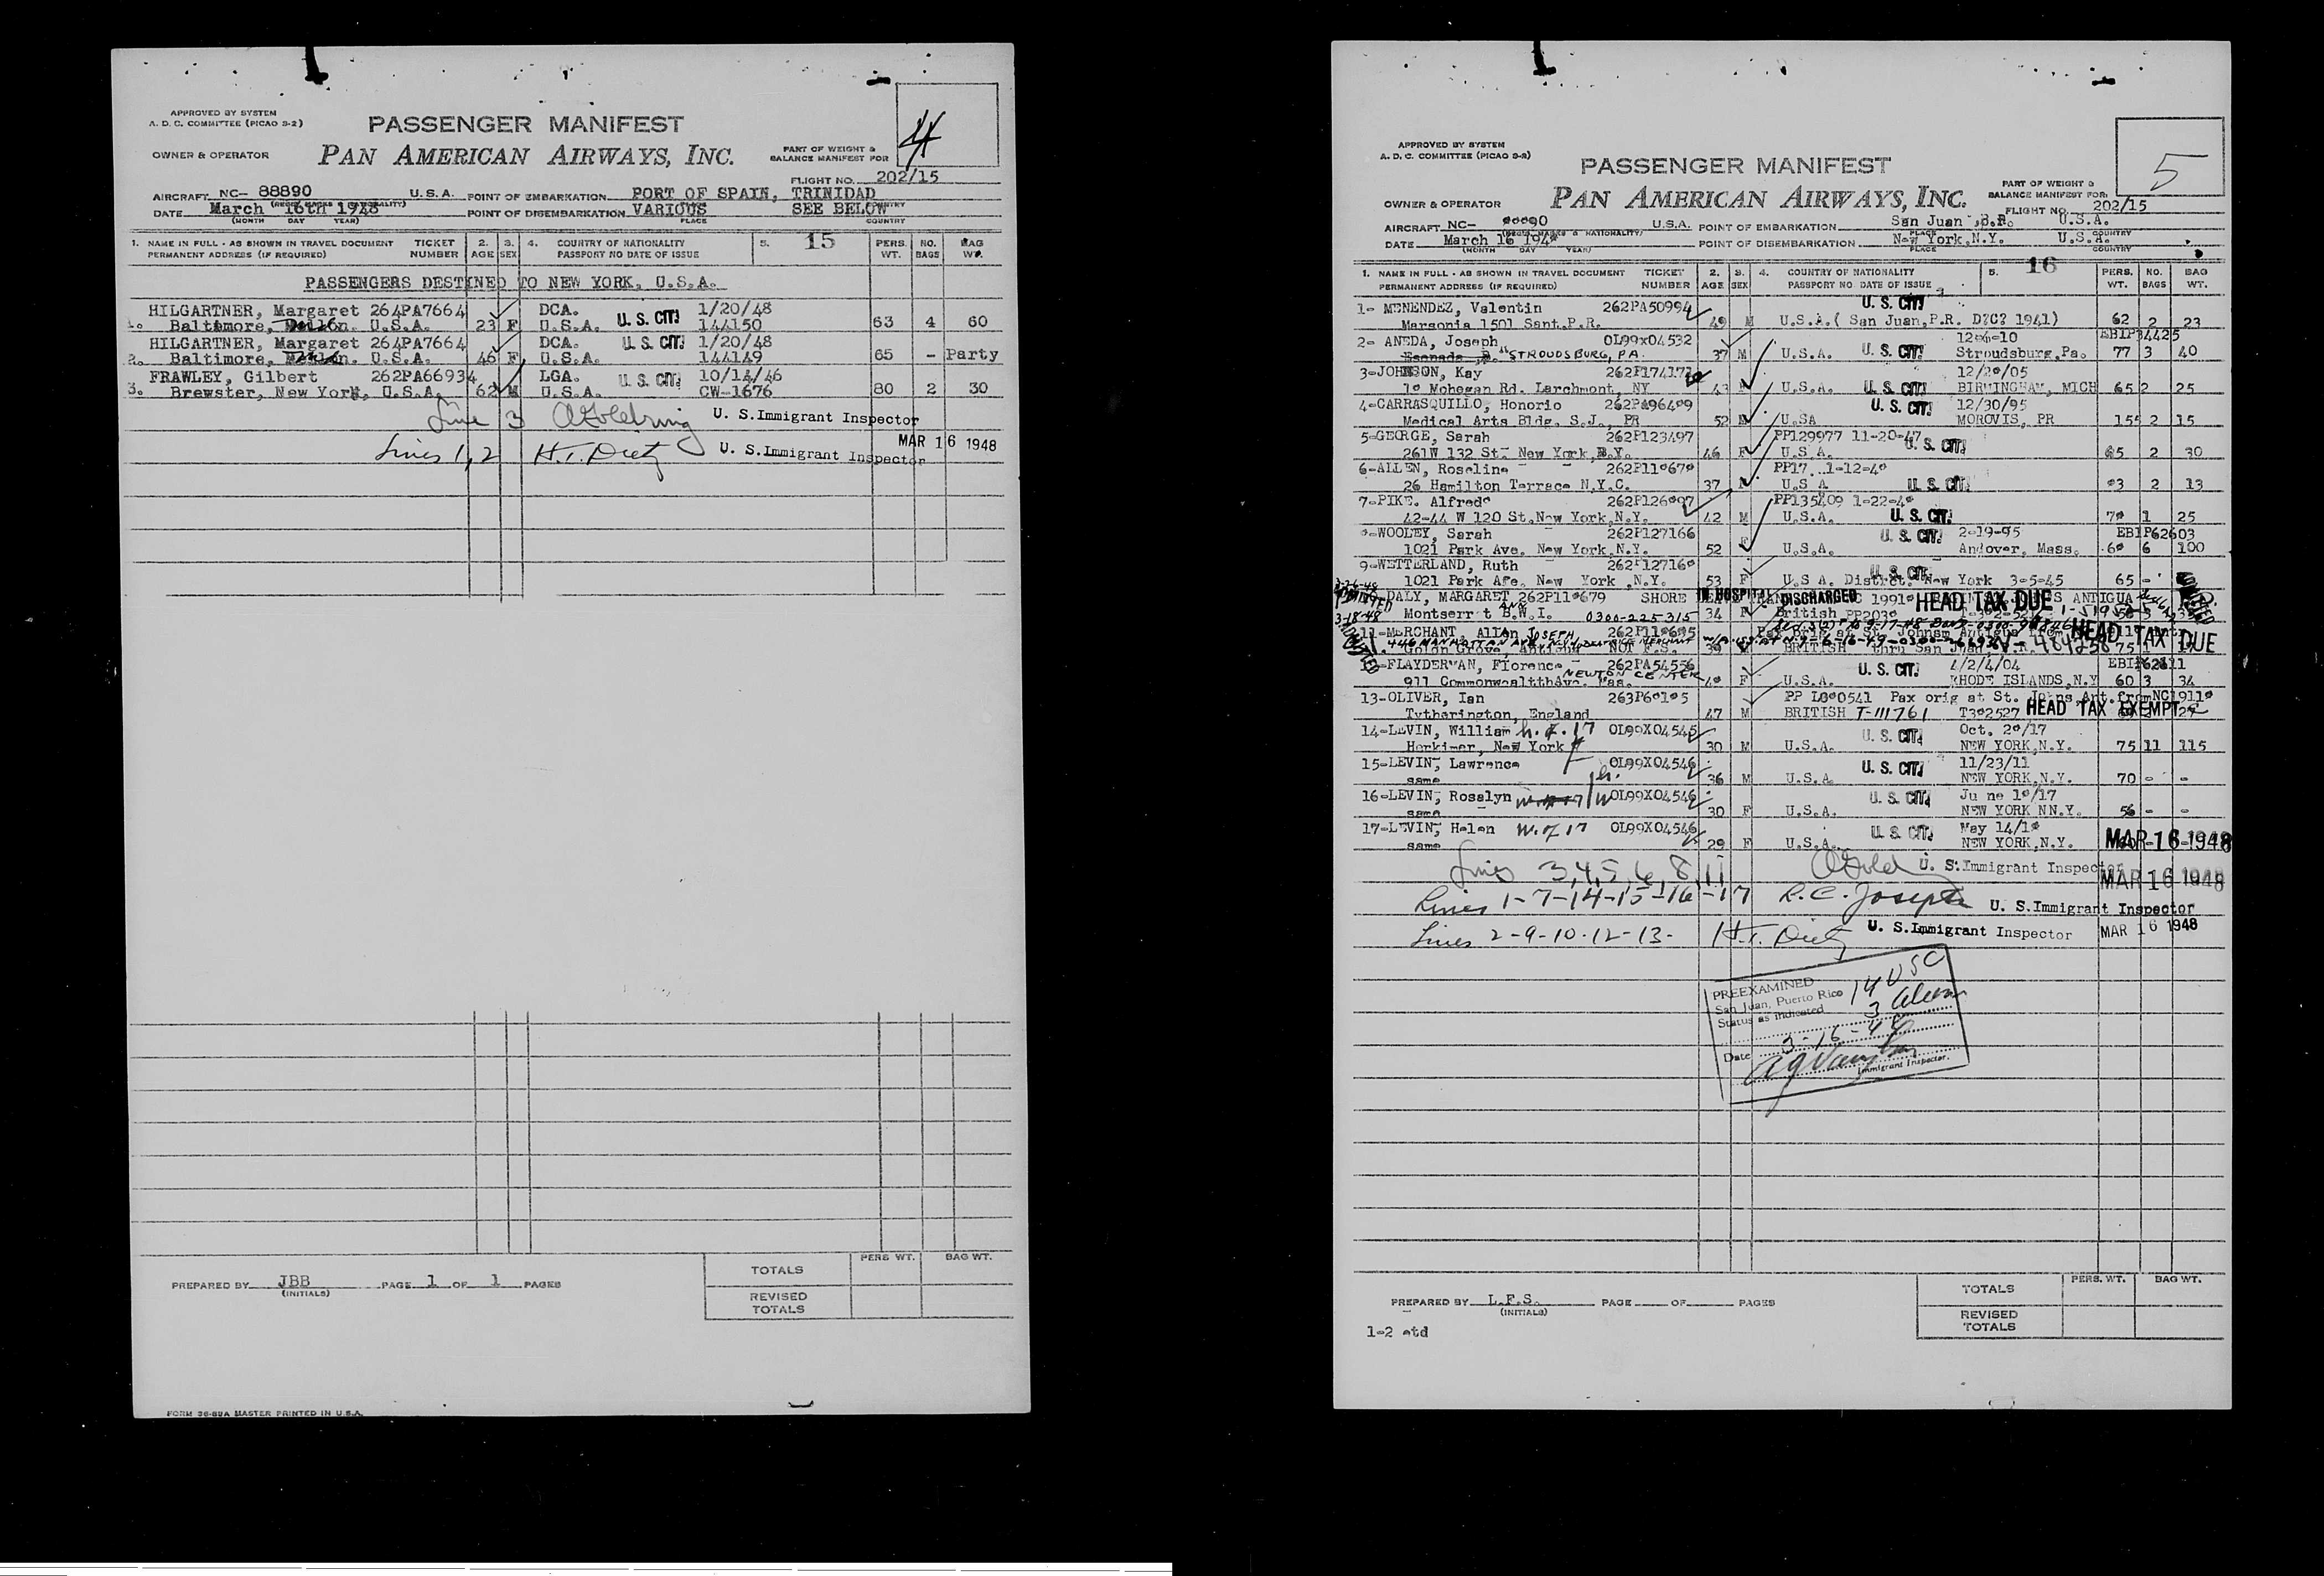 APPROVED BY SYSTEM
A. D. C. COMMITTEE (PICAO S-2)
PASSENGER MANIFEST
4
OWNER & OPERATOR
PAN AMERICAN AIRWAYS, INC.
PART OF WEIGHT &
BALANCE MANIFEST FOR
FLIGHT NO. 202/15
AIRCRAFT NC- 88890 U.S.A. POINT OF EMBARKATION PORT OF SPAIN, TRINIDAD
DATE March 16th 1948 POINT OF DISEMBARKATION VARIOUS SEE BELOW
(MONTH DAY YEAR) PLACE COUNTRY
1. NAME IN FULL - AS SHOWN IN TRAVEL DOCUMENT TICKET 2. 3. 4. COUNTRY OF NATIONALITY 5. 15 PERS. NO. BAG
PERMANENT ADDRESS (IF REQUIRED) NUMBER AGE SEX PASSPORT NO DATE OF ISSUE WT. BAGS WT.
PASSENGERS DESTINED TO NEW YORK, U.S.A.
HILGARTNER, Margaret 264PA7664 DCA. 1/20/48
1. Baltimore, U.S.A. 23 F U.S.A. U. S. CIT. 144150 63 4 60
HILGARTNER, Margaret 264PA7664 DCA. U. S. CIT. 1/20/48
2. Baltimore, U.S.A. 46 F U.S.A. 144149 65 - Party
FRAWLEY, Gilbert 262PA66934 LGA. U. S. CIT. 10/14/46
3. Brewster, New York, U.S.A. 62 M U.S.A. CW-1676 80 2 30
Line 3 U. S. Immigrant Inspector
MAR 16 1948
Lines 1,2 H.T. Dietz U. S. Immigrant Inspector
TOTALS PERS WT. BAG WT.
PREPARED BY JBB PAGE 1 OF 1 PAGES
(INITIALS)
REVISED
TOTALS
FORM 36-89A MASTER PRINTED IN U.S.A.
APPROVED BY SYSTEM
A. D. C. COMMITTEE (PICAO S-2)
PASSENGER MANIFEST
5
OWNER & OPERATOR
PAN AMERICAN AIRWAYS, INC.
PART OF WEIGHT &
BALANCE MANIFEST FOR
FLIGHT NO. 202/15
AIRCRAFT NC- U.S.A. POINT OF EMBARKATION San Juan, U.S.A.
DATE March 16 POINT OF DISEMBARKATION New York, N.Y. U.S.A.
(MONTH DAY YEAR) PLACE COUNTRY
1. NAME IN FULL - AS SHOWN IN TRAVEL DOCUMENT TICKET 2. 3. 4. COUNTRY OF NATIONALITY 5. 16 PERS. NO. BAG
PERMANENT ADDRESS (IF REQUIRED) NUMBER AGE SEX PASSPORT NO DATE OF ISSUE WT. BAGS WT.
1- MENENDEZ, Valentin 262PA50994 U. S. CIT.
Margonia 1501 Sant.P.R. 49 M U.S.A.( San Juan,P.R. D?C? 1941) 62 2 23
2- ANEDA, Joseph OL99X04532 12-6-10 EBIP34425
STROUDSBURG, PA. 37 M U.S.A. U. S. CIT. Stroudsburg,Pa. 77 3 40
3-JOHNSON, Kay
Mohegan Rd. Larchmont, NY 43 U.S.A. U. S. CIT. BIRMINGHAM, MICH 65 2 25
4-CARRASQUILLO, Honorio U. S. CIT. 12/30/95
Medical Arts Bldg. S.J., PR 52 M U.SA MOROVIS, PR 155 2 15
5-GEORGE, Sarah 262P123497 PP129977 11-20-47 U. S. CIT.
261W 132 St- New York, N.Y. 46 F U.S.A. 2 30
6-ALLEN, Roseline PP17 1-12-
26 Hamilton Terrace N.Y.C. 37 U.S A U. S. CIT. 2 13
7-PIKE. Alfredo
42-44 W 120 St.New York,N.Y. 42 M U.S.A. U. S. CIT. 1 25
WOOLEY, Sarah 262P127166 U. S. CIT. 2-19-95 EBIP62603
1021 Park Ave. New York,N.Y. 52 F U.S.A. Andover, Mass. 6 100
9-WETTERLAND, Ruth U. S. CIT.
1021 Park Ave. New York ,N.Y. 53 F U.S A. District. New York 3-5-45 65 -
DALY, MARGARET SHORE IN HOSPITAL DISCHARGED HEAD TAX DUE
Montserr t B.W.I. 0300-225315 34 F British
11-MERCHANT Allan JOSEPH HEAD TAX DUE
NOT F.S. BRITISH thru San Juan 75
FLAYDERMAN, Florence 262PA54556 U. S. CIT. 4/2/4/04
911 Commonwealth Ave. Mas. NEWTON CENTER F U.S.A. RHODE ISLANDS,N.Y 60 3 34
13-OLIVER, Ian PP Pax orig at St. Johns,Ant.
Tytherington, England 47 M BRITISH T-111761 HEAD TAX EXEMPT
14-LEVIN, William OL99X04545 U. S. CIT. Oct.
Herkimer, New York 30 M U.S.A. NEW YORK,N.Y. 75 11 115
15-LEVIN, Lawrence OL99X04546 U. S. CIT. 11/23/11
same 36 M U.S.A NEW YORK,N.Y. 70 - -
16-LEVIN, Rosalyn OL99X04546 U. S. CIT. Ju ne
same 30 F U.S.A. NEW YORK NN.Y. 56 - -
17-LEVIN, Helen W. of 17 OL99X04546 U. S. CIT. May
same 29 F U.S.A. NEW YORK,N.Y. MAR-16-1948
Lines 3,4,5,6,8,11 U. S. Immigrant Inspector
MAR 16 1948
Lines 1-7-14-15-16-17 R.C. Joseph U. S. Immigrant Inspector
Lines 2-9-10-12-13- H.T. Dietz U. S. Immigrant Inspector MAR 16 1948
PREEXAMINED
San Juan, Puerto Rico 14 USC
Status as indicated 3 alien
Date 3-16-48
Immigrant Inspector.
TOTALS PERS. WT. BAG WT.
PREPARED BY L.F.S. PAGE OF PAGES
(INITIALS)
REVISED
TOTALS
1-2 std